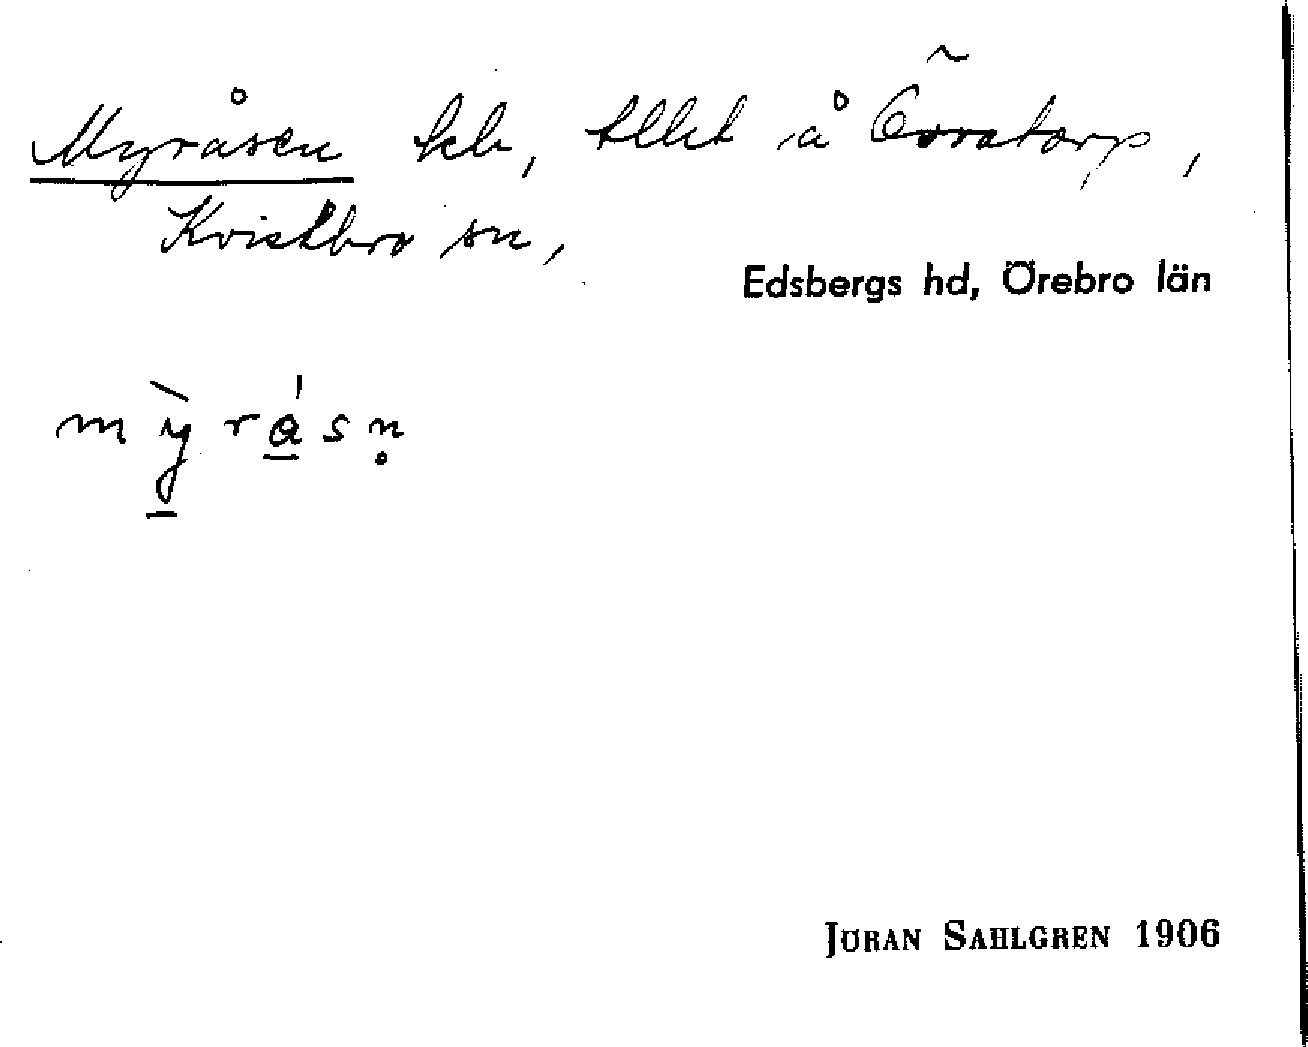 Myråsen hb, tllht å Övratorp,
Kvistbro sn,
Edsbergs hd, Örebro län
m ỳ̱ r a̱̍ s n̥
JÖRAN SAHLGREN 1906